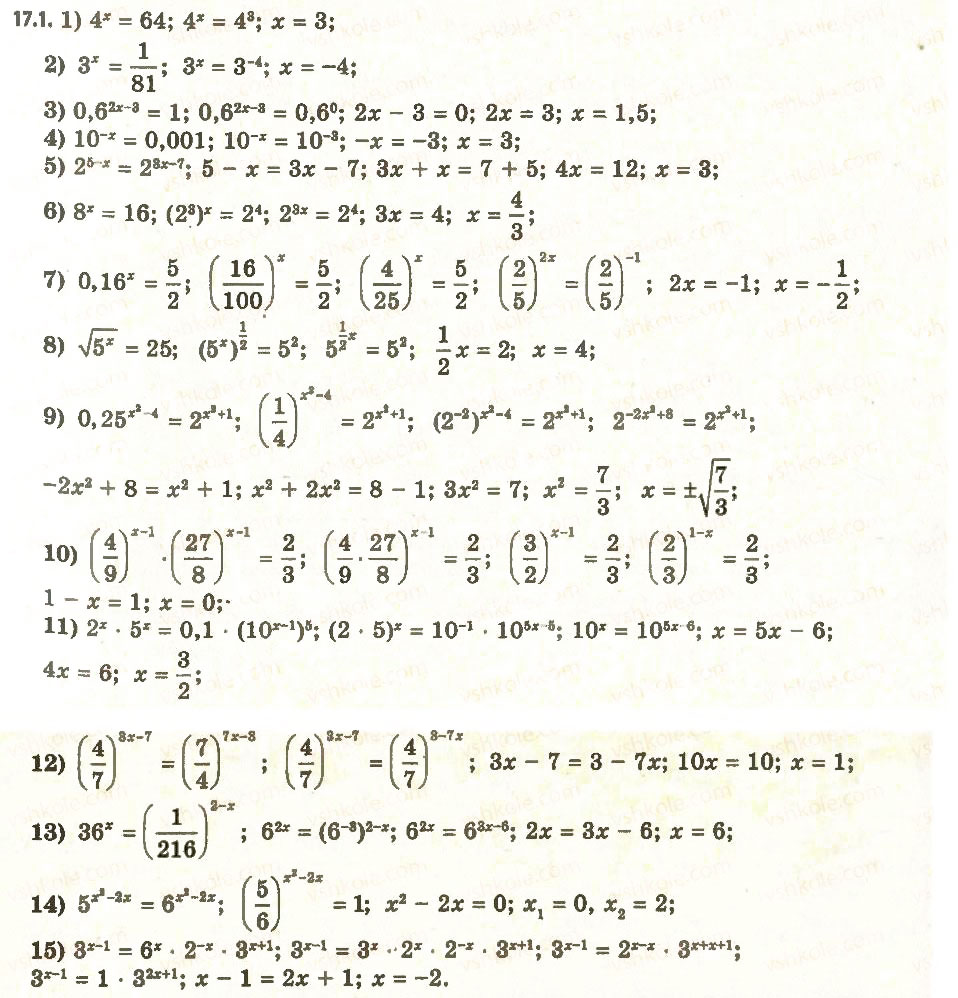 17.1. 1) 4ˣ = 64; 4ˣ = 4³; x = 3;
2) 3ˣ = 1/81; 3ˣ = 3⁻⁴; x = −4;
3) 0,6²ˣ⁻³ = 1; 0,6²ˣ⁻³ = 0,6⁰; 2x − 3 = 0; 2x = 3; x = 1,5;
4) 10⁻ˣ = 0,001; 10⁻ˣ = 10⁻³; −x = −3; x = 3;
5) 2⁵⁻ˣ = 2³ˣ⁻⁷; 5 − x = 3x − 7; 3x + x = 7 + 5; 4x = 12; x = 3;
6) 8ˣ = 16; (2³)ˣ = 2⁴; 2³ˣ = 2⁴; 3x = 4; x = 4/3;
7) 0,16ˣ = 5/2; (16/100)ˣ = 5/2; (4/25)ˣ = 5/2; (2/5)²ˣ = (2/5)⁻¹; 2x = −1; x = −1/2;
8) √(5ˣ) = 25; (5ˣ)^(1/2) = 5²; 5^(1/2 x) = 5²; 1/2 x = 2; x = 4;
9) 0,25^(x²−4) = 2^(x²+1); (1/4)^(x²−4) = 2^(x²+1); (2⁻²)^(x²−4) = 2^(x²+1); 2^(−2x²+8) = 2^(x²+1);
−2x² + 8 = x² + 1; x² + 2x² = 8 − 1; 3x² = 7; x² = 7/3; x = ±√(7/3);
10) (4/9)ˣ⁻¹ · (27/8)ˣ⁻¹ = 2/3; (4/9 · 27/8)ˣ⁻¹ = 2/3; (3/2)ˣ⁻¹ = 2/3; (2/3)¹⁻ˣ = 2/3;
1 − x = 1; x = 0;
11) 2ˣ · 5ˣ = 0,1 · (10ˣ⁻¹)⁵; (2 · 5)ˣ = 10⁻¹ · 10⁵ˣ⁻⁵; 10ˣ = 10⁵ˣ⁻⁶; x = 5x − 6;
4x = 6; x = 3/2;
12) (4/7)³ˣ⁻⁷ = (7/4)⁷ˣ⁻³; (4/7)³ˣ⁻⁷ = (4/7)³⁻⁷ˣ; 3x − 7 = 3 − 7x; 10x = 10; x = 1;
13) 36ˣ = (1/216)²⁻ˣ; 6²ˣ = (6⁻³)²⁻ˣ; 6²ˣ = 6³ˣ⁻⁶; 2x = 3x − 6; x = 6;
14) 5^(x²−2x) = 6^(x²−2x); (5/6)^(x²−2x) = 1; x² − 2x = 0; x₁ = 0, x₂ = 2;
15) 3ˣ⁻¹ = 6ˣ · 2⁻ˣ · 3ˣ⁺¹; 3ˣ⁻¹ = 3ˣ · 2ˣ · 2⁻ˣ · 3ˣ⁺¹; 3ˣ⁻¹ = 2ˣ⁻ˣ · 3ˣ⁺ˣ⁺¹;
3ˣ⁻¹ = 1 · 3²ˣ⁺¹; x − 1 = 2x + 1; x = −2.